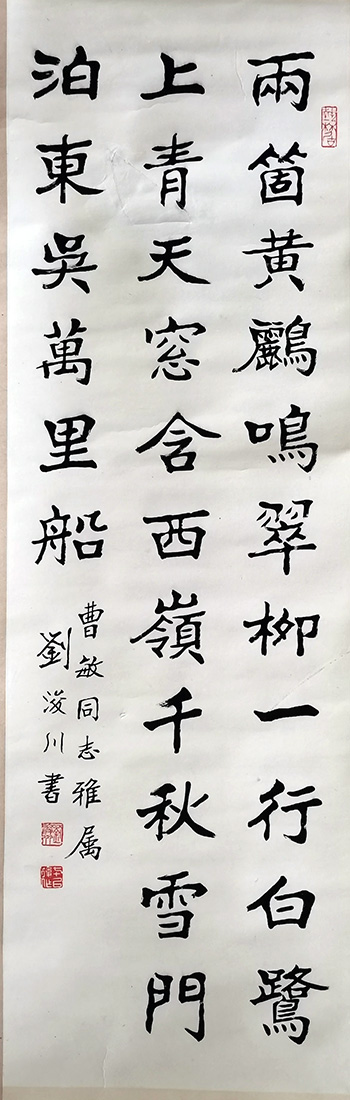 兩箇黃鸝鳴翠柳一行白鷺
上青天窓含西嶺千秋雪門
泊東吳萬里船
曹敏同志雅属
劉浚川書